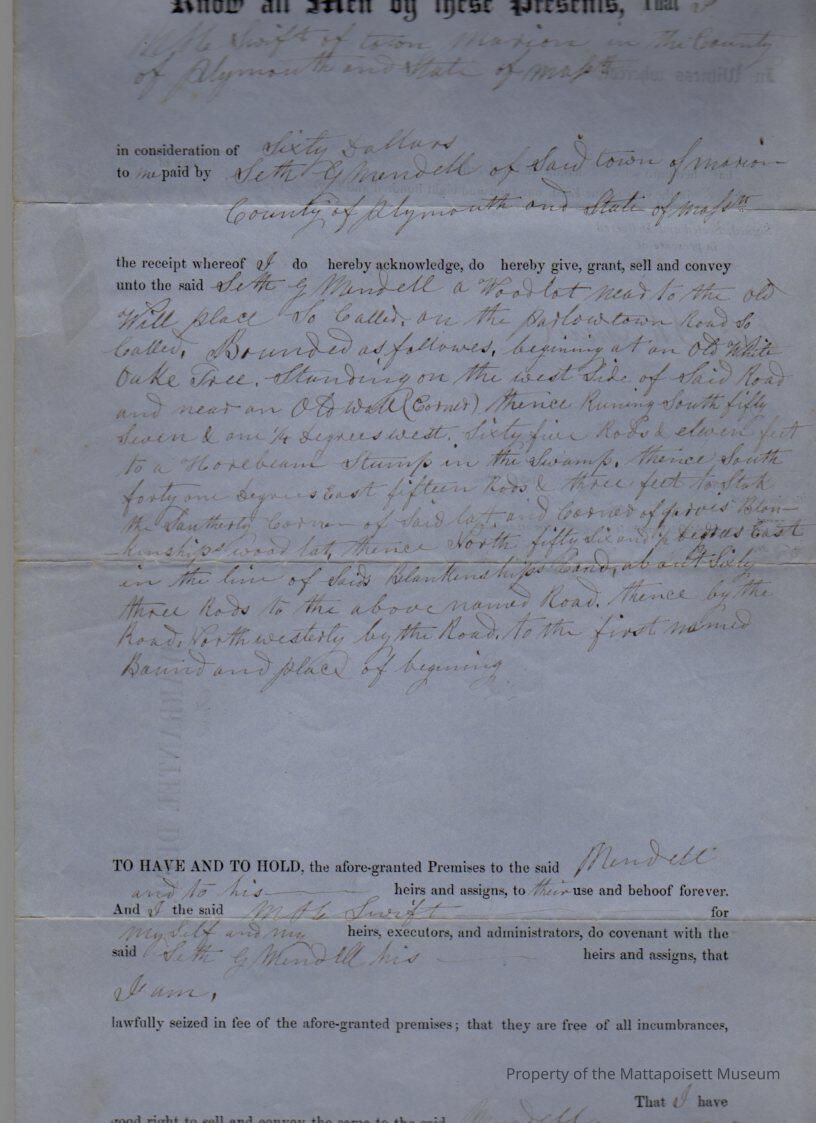 Know all Men by these Presents, That I
Swift of town Marion in the County
of Plymouth and State of Masstts
in consideration of Sixty Dollars
to me paid by Seth G Mendell of Said town of Marion
County of Plymouth and State of Masstts
the receipt whereof I do hereby acknowledge, do hereby give, grant, sell and convey
unto the said Seth G Mendell a Woodlot near to the old
Will place So Called, on the parlowtown Road So
Called, Bounded as followes, begining at an Old White
Oake Tree, Standing on the west Side of Said Road
and near an Old wall (Corner) thence Runing South fifty
Seven & one 1/4 degrees west, Sixty five Rods & eleven feet
to a Horebeam Stump in the Swamp, thence South
forty one degrees East fifteen Rods & three feet to Stak
the Southerly Corner of Said lot, and Corner of Blan-
kinships wood lot, thence North fifty Six and degrees East
in the line of Said Blankinships Land, about Sixty
three Rods to the above named Road, thence by the
Road, Northwesterly by the Road, to the first named
Bound and place of begining
TO HAVE AND TO HOLD, the afore-granted Premises to the said Mendell
and to his heirs and assigns, to their use and behoof forever.
And I the said Swift for
my Self and my heirs, executors, and administrators, do covenant with the
said Seth G Mendell his heirs and assigns, that
I am,
lawfully seized in fee of the afore-granted premises; that they are free of all incumbrances,
That I have
good right to sell and convey the same to the said Mendell
Property of the Mattapoisett Museum